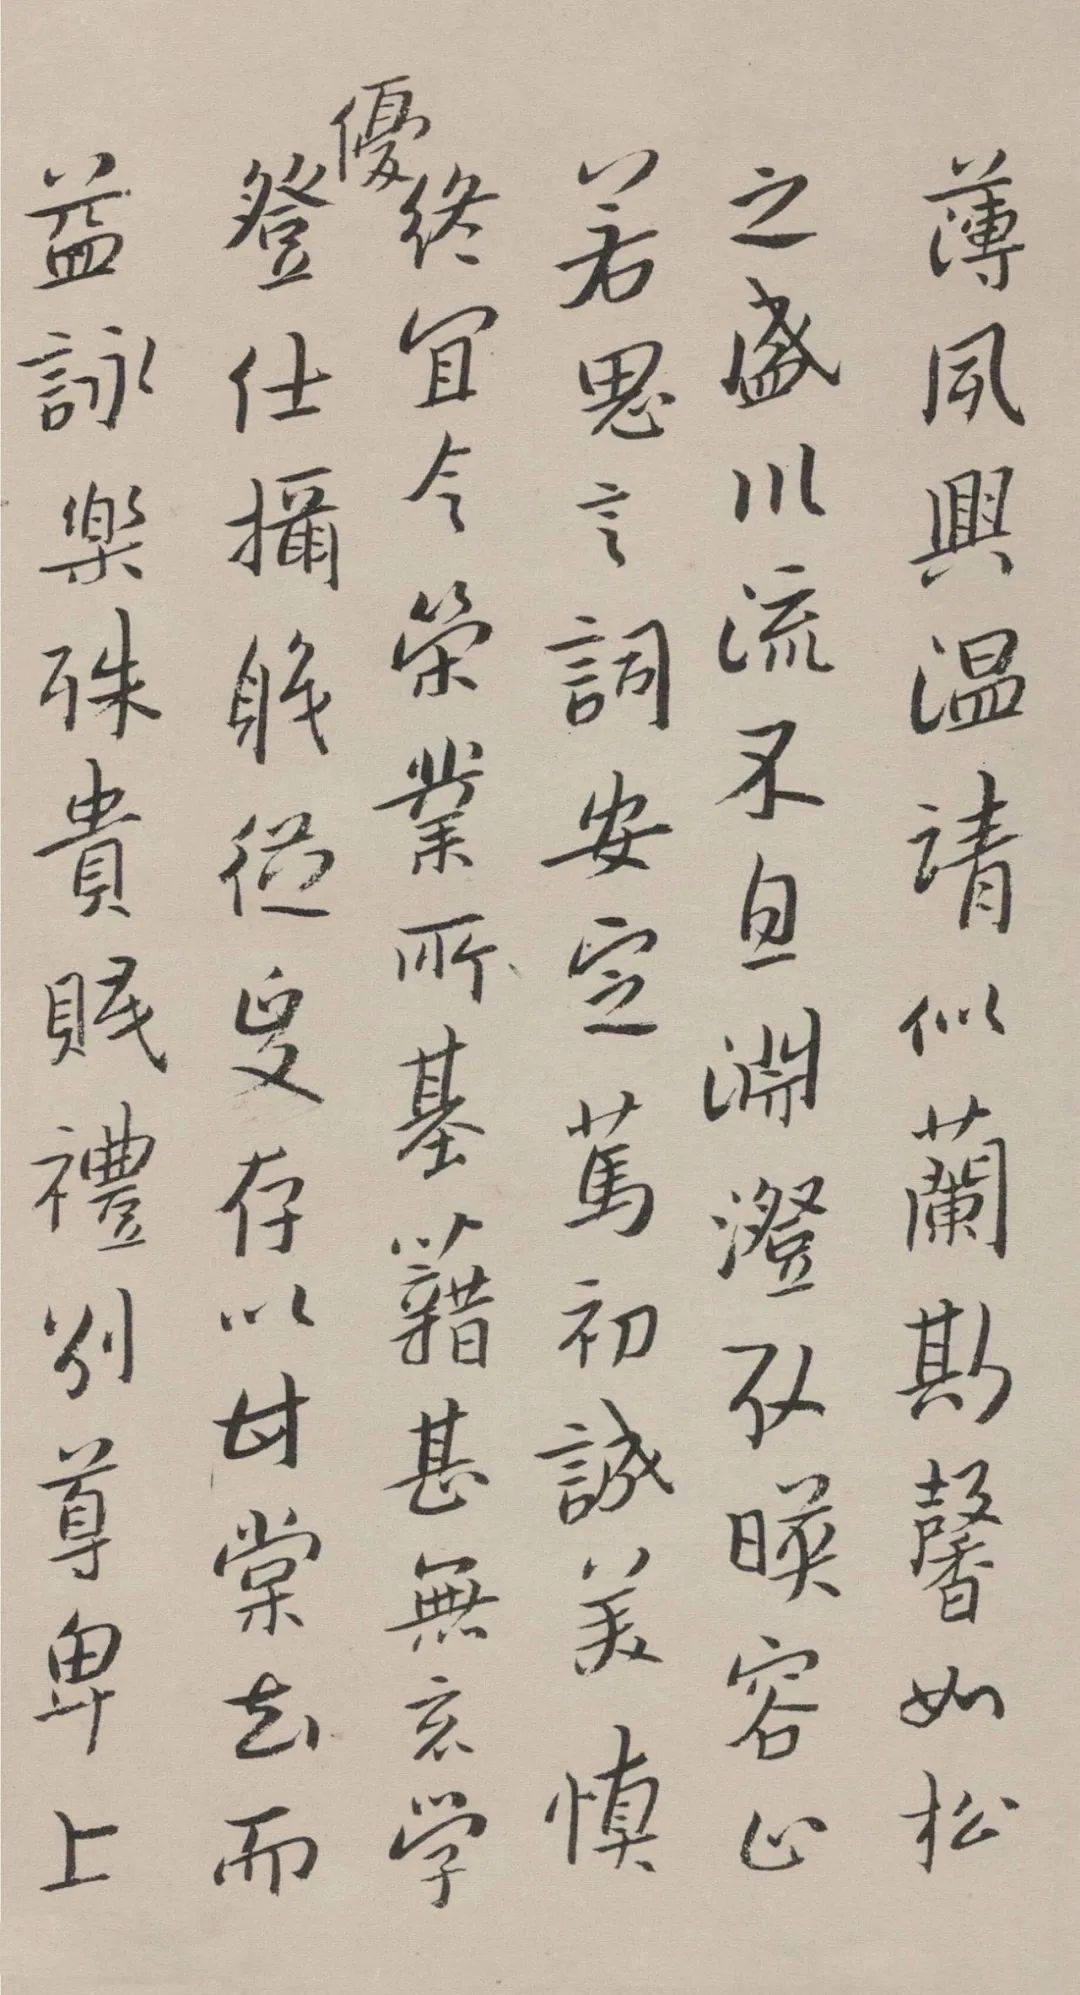 薄夙興温請似蘭斯馨如松
之盛川流不息淵澄取暎容止
若思言詞安定篤初誠美慎
終宜令榮業所基藉甚無竟學
優
登仕攝職從政存以甘棠去而
益詠樂殊貴賤禮別尊卑上